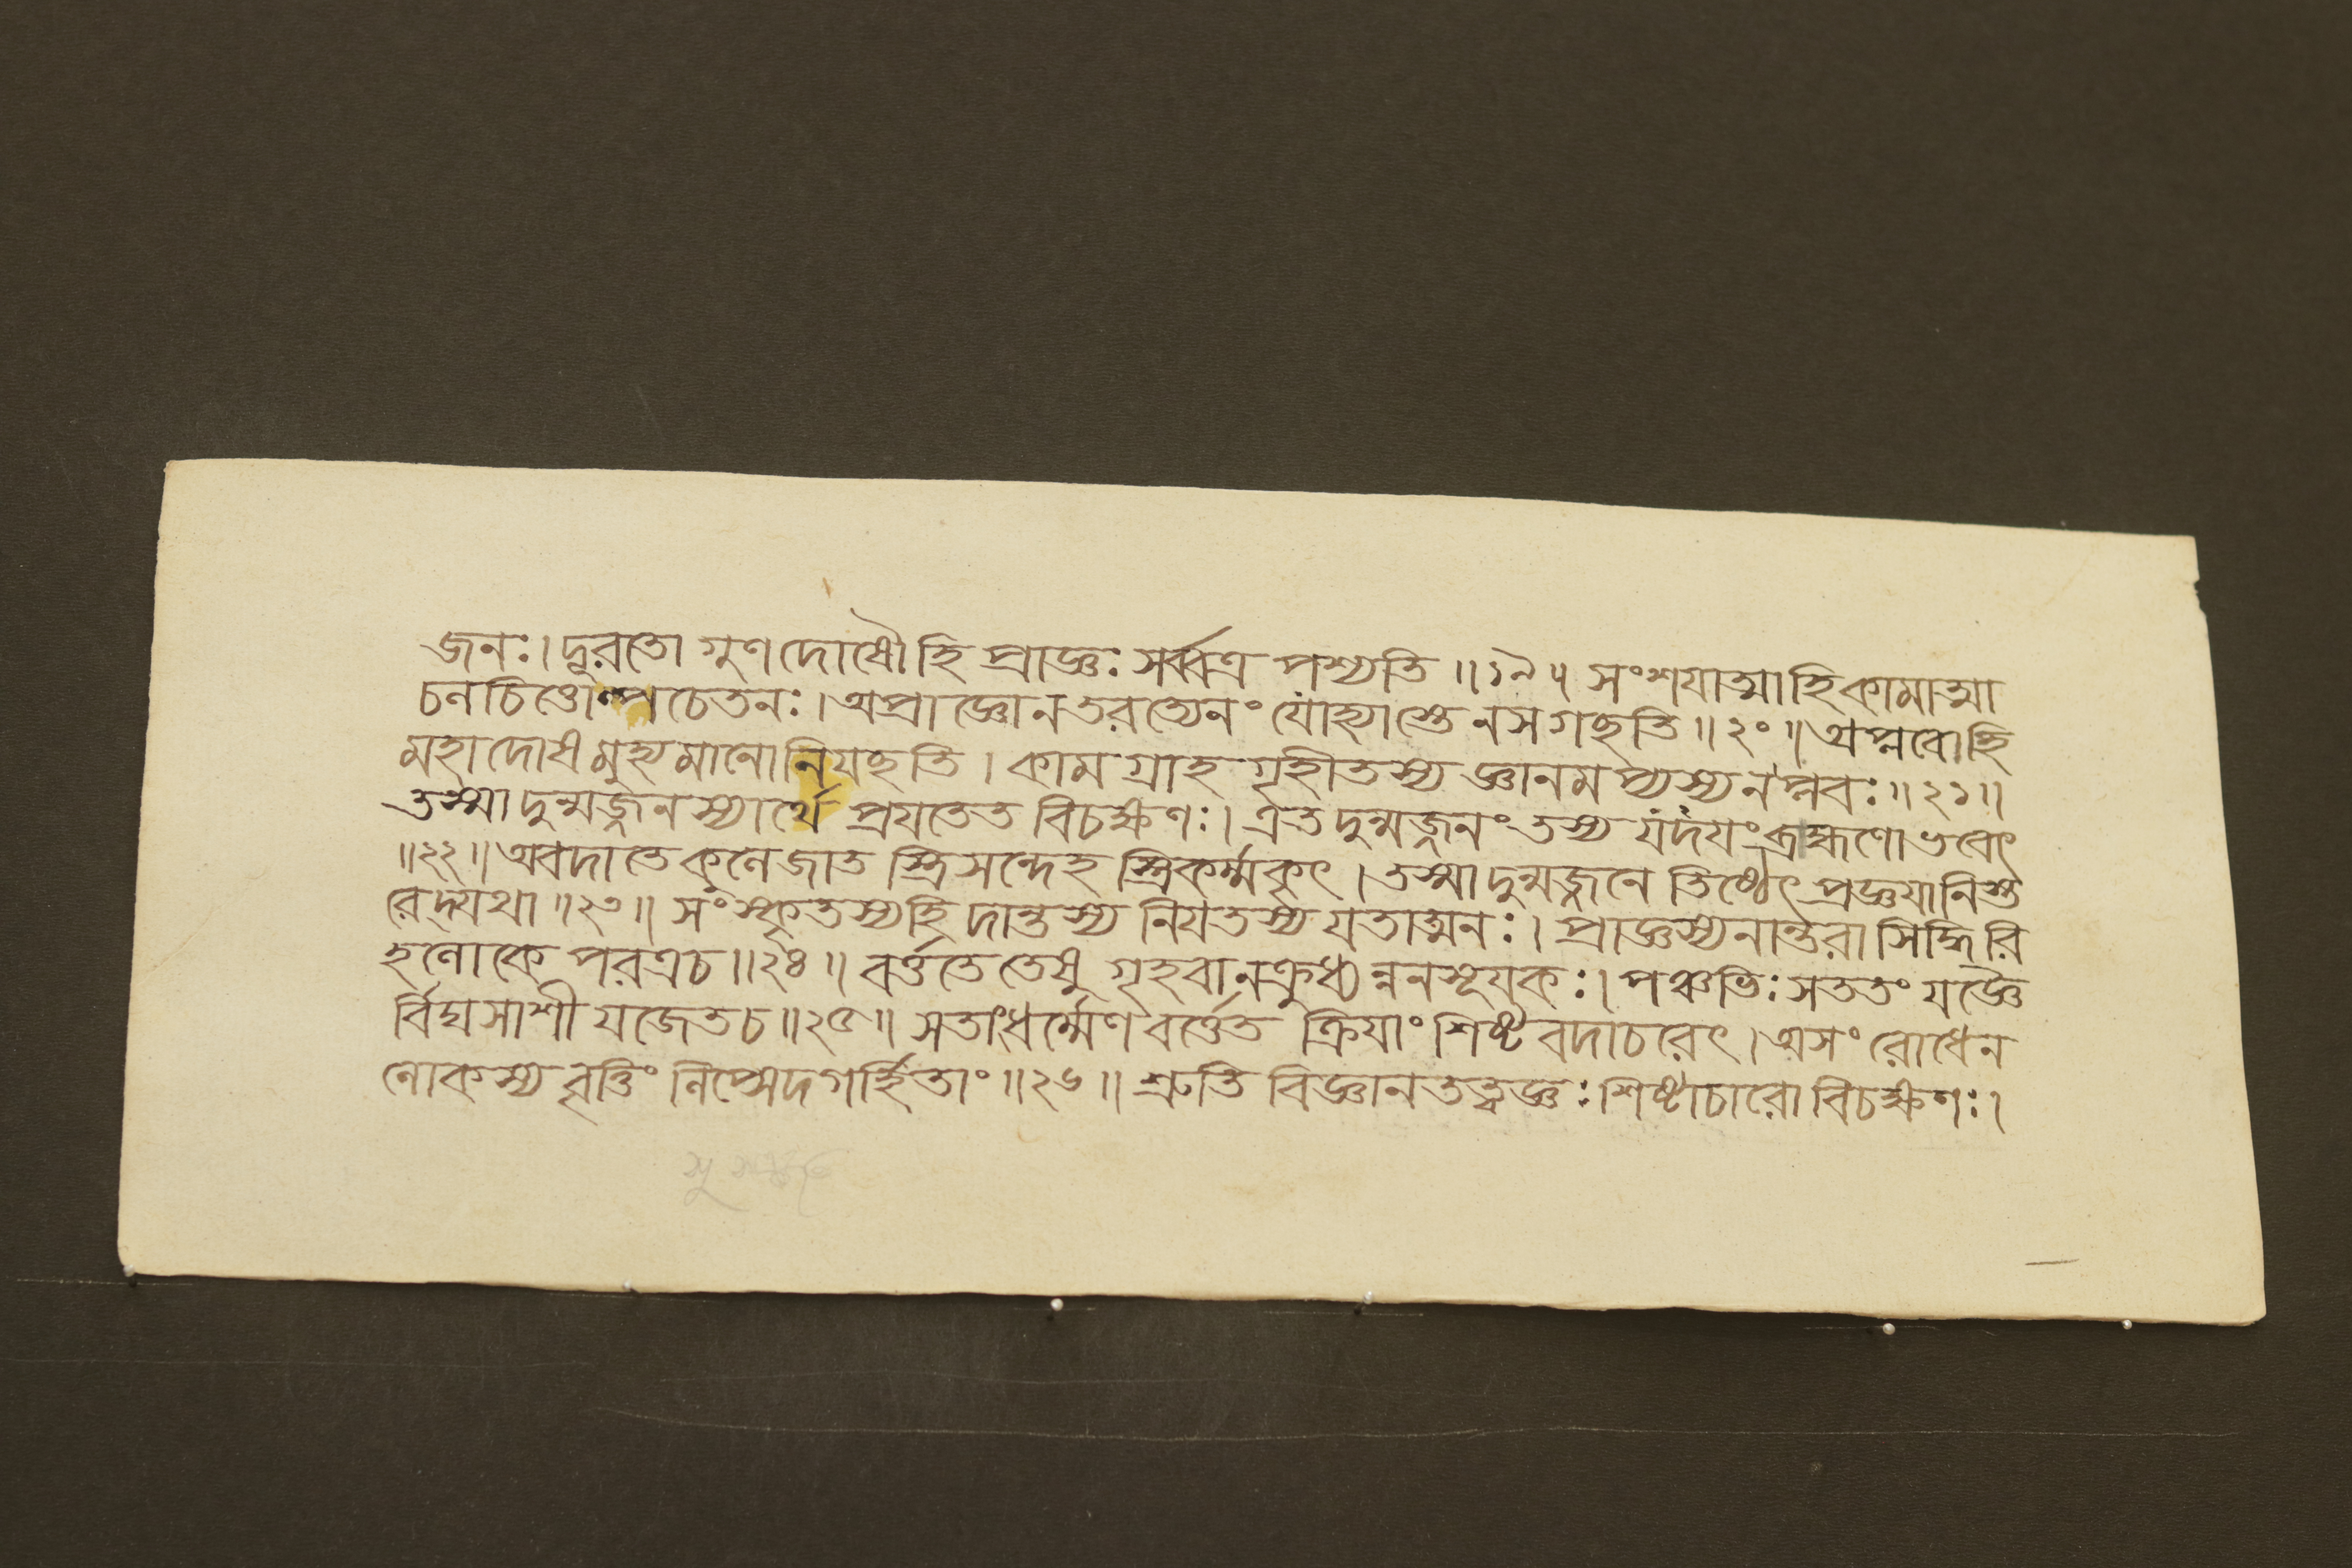 জনঃ। দূরতো গুণদোষৌ হি প্রাজ্ঞঃ সর্ব্বত্র পশ্যতি ॥ ১৯ ॥ সংশযাত্মাহিকামাত্মা
চনচিত্তোল্পচেতনঃ। অপ্রাজ্ঞোনতরত্যেনং যোহ্যাস্তেনসগছতি ॥ ২০ ॥ অপ্লবোহি
মহাদোষমুহ্যমানোনিযছতি। কামগ্রাহগৃহীতস্য জ্ঞানমপ্যস্যনপ্লবঃ ॥ ২১ ॥
তস্মাদুন্মজ্জনস্যার্থে প্রযতেত বিচক্ষণঃ। এতদুন্মজ্জনংতস্য যদযংব্রাহ্মণোভবেৎ
॥ ২২ ॥ অবদাতেকুলেজাত স্ত্রিসন্দেহ স্ত্রিকর্ম্মকৃৎ। তস্মাদুন্মজ্জনে তিষ্ঠেৎ প্রজ্ঞযানিস্ত
রেদ্যথা ॥ ২৩ ॥ সংস্কৃতস্যহি দান্তস্য নিযতস্য যতাত্মনঃ। প্রাজ্ঞস্যনান্তরা সিদ্ধিরি
হলোকে পরত্রচ ॥ ২৪ ॥ বর্ত্ততে তেষু গৃহবানক্রুধ্যন্ননসূযকঃ। পঞ্চভিঃ সততং যজ্ঞৈ
র্বিঘসাশী যজেতচ ॥ ২৫ ॥ সতাংধর্ম্মেণবর্ত্তেত ক্রিযাং শিষ্টবদাচরেৎ। অসংরোধেন
লোকস্য বৃত্তিং লিপ্সেদগর্হিতাং ॥ ২৬ ॥ শ্রুতি বিজ্ঞানতত্ত্বজ্ঞঃ শিষ্টাচারো বিচক্ষণঃ।